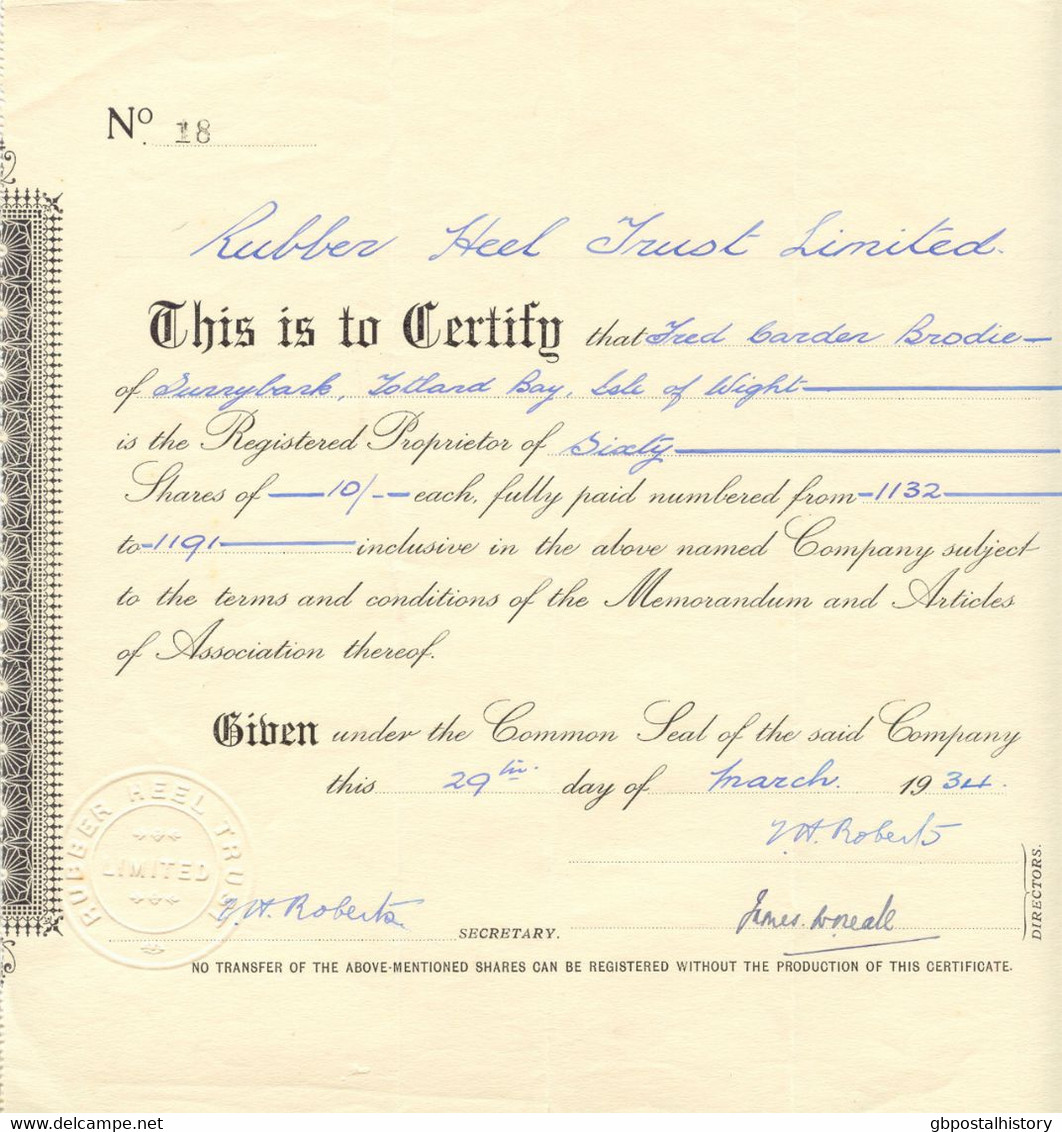 No. 18
Rubber Heel Trust Limited.
This is to Certify that Fred Carder Brodie
of Sunnybank, Totland Bay, Isle of Wight
is the Registered Proprietor of Sixty
Shares of 10/- each, fully paid numbered from 1132
to 1191 inclusive in the above named Company subject
to the terms and conditions of the Memorandum and Articles
of Association thereof.
Given under the Common Seal of the said Company
this 29th. day of March. 1934.
RUBBER HEEL TRUST
LIMITED
H. Roberts
DIRECTORS.
H. Roberts SECRETARY.
James
NO TRANSFER OF THE ABOVE-MENTIONED SHARES CAN BE REGISTERED WITHOUT THE PRODUCTION OF THIS CERTIFICATE.
delcampe.net
gbpostalhistory